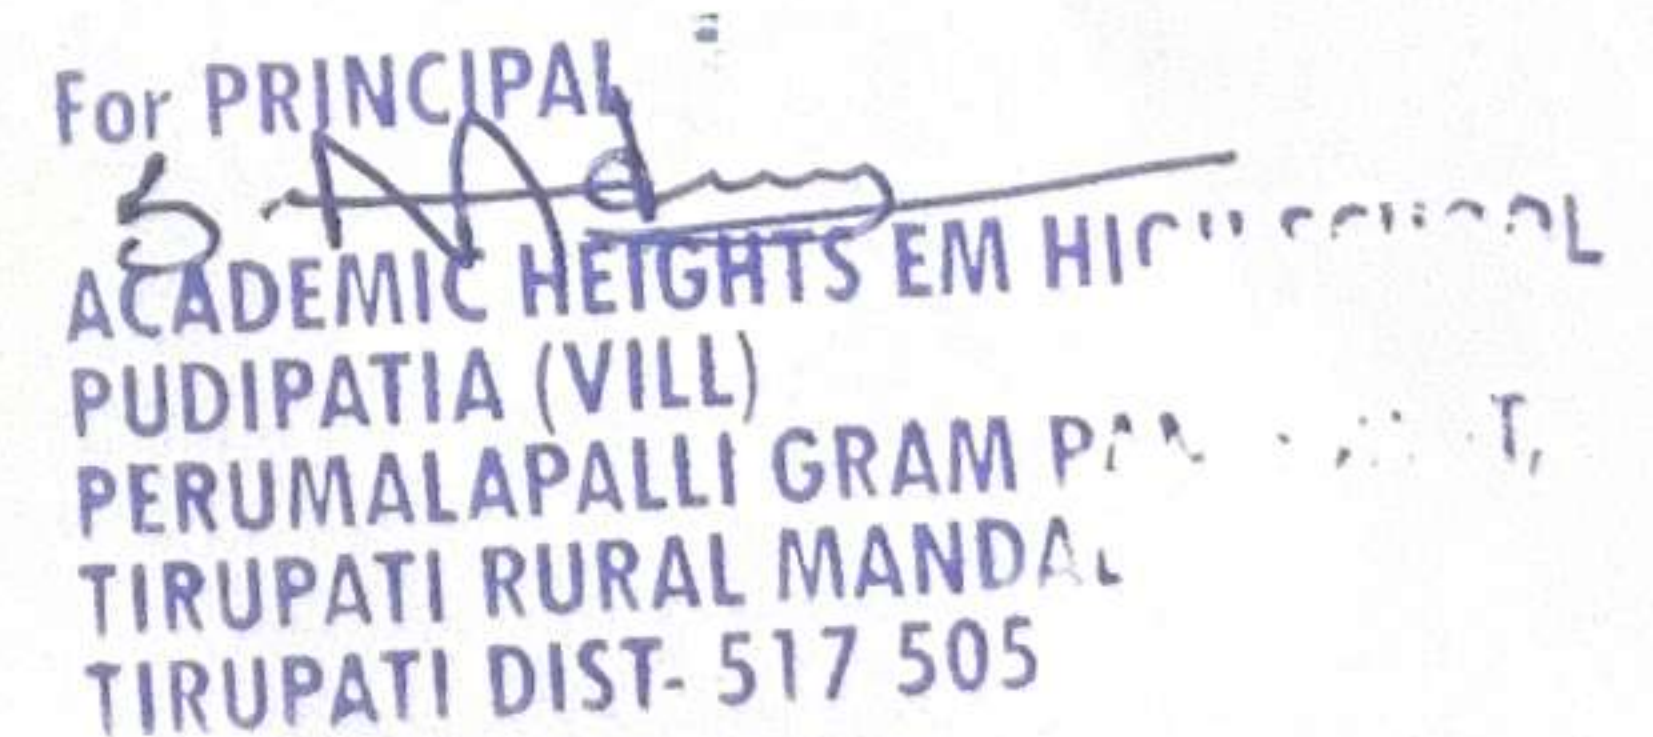 For PRINCIPAL
ACADEMIC HEIGHTS EM HIGH SCHOOL
PUDIPATIA (VILL)
PERUMALAPALLI GRAM
TIRUPATI RURAL MANDAL
TIRUPATI DIST- 517 505